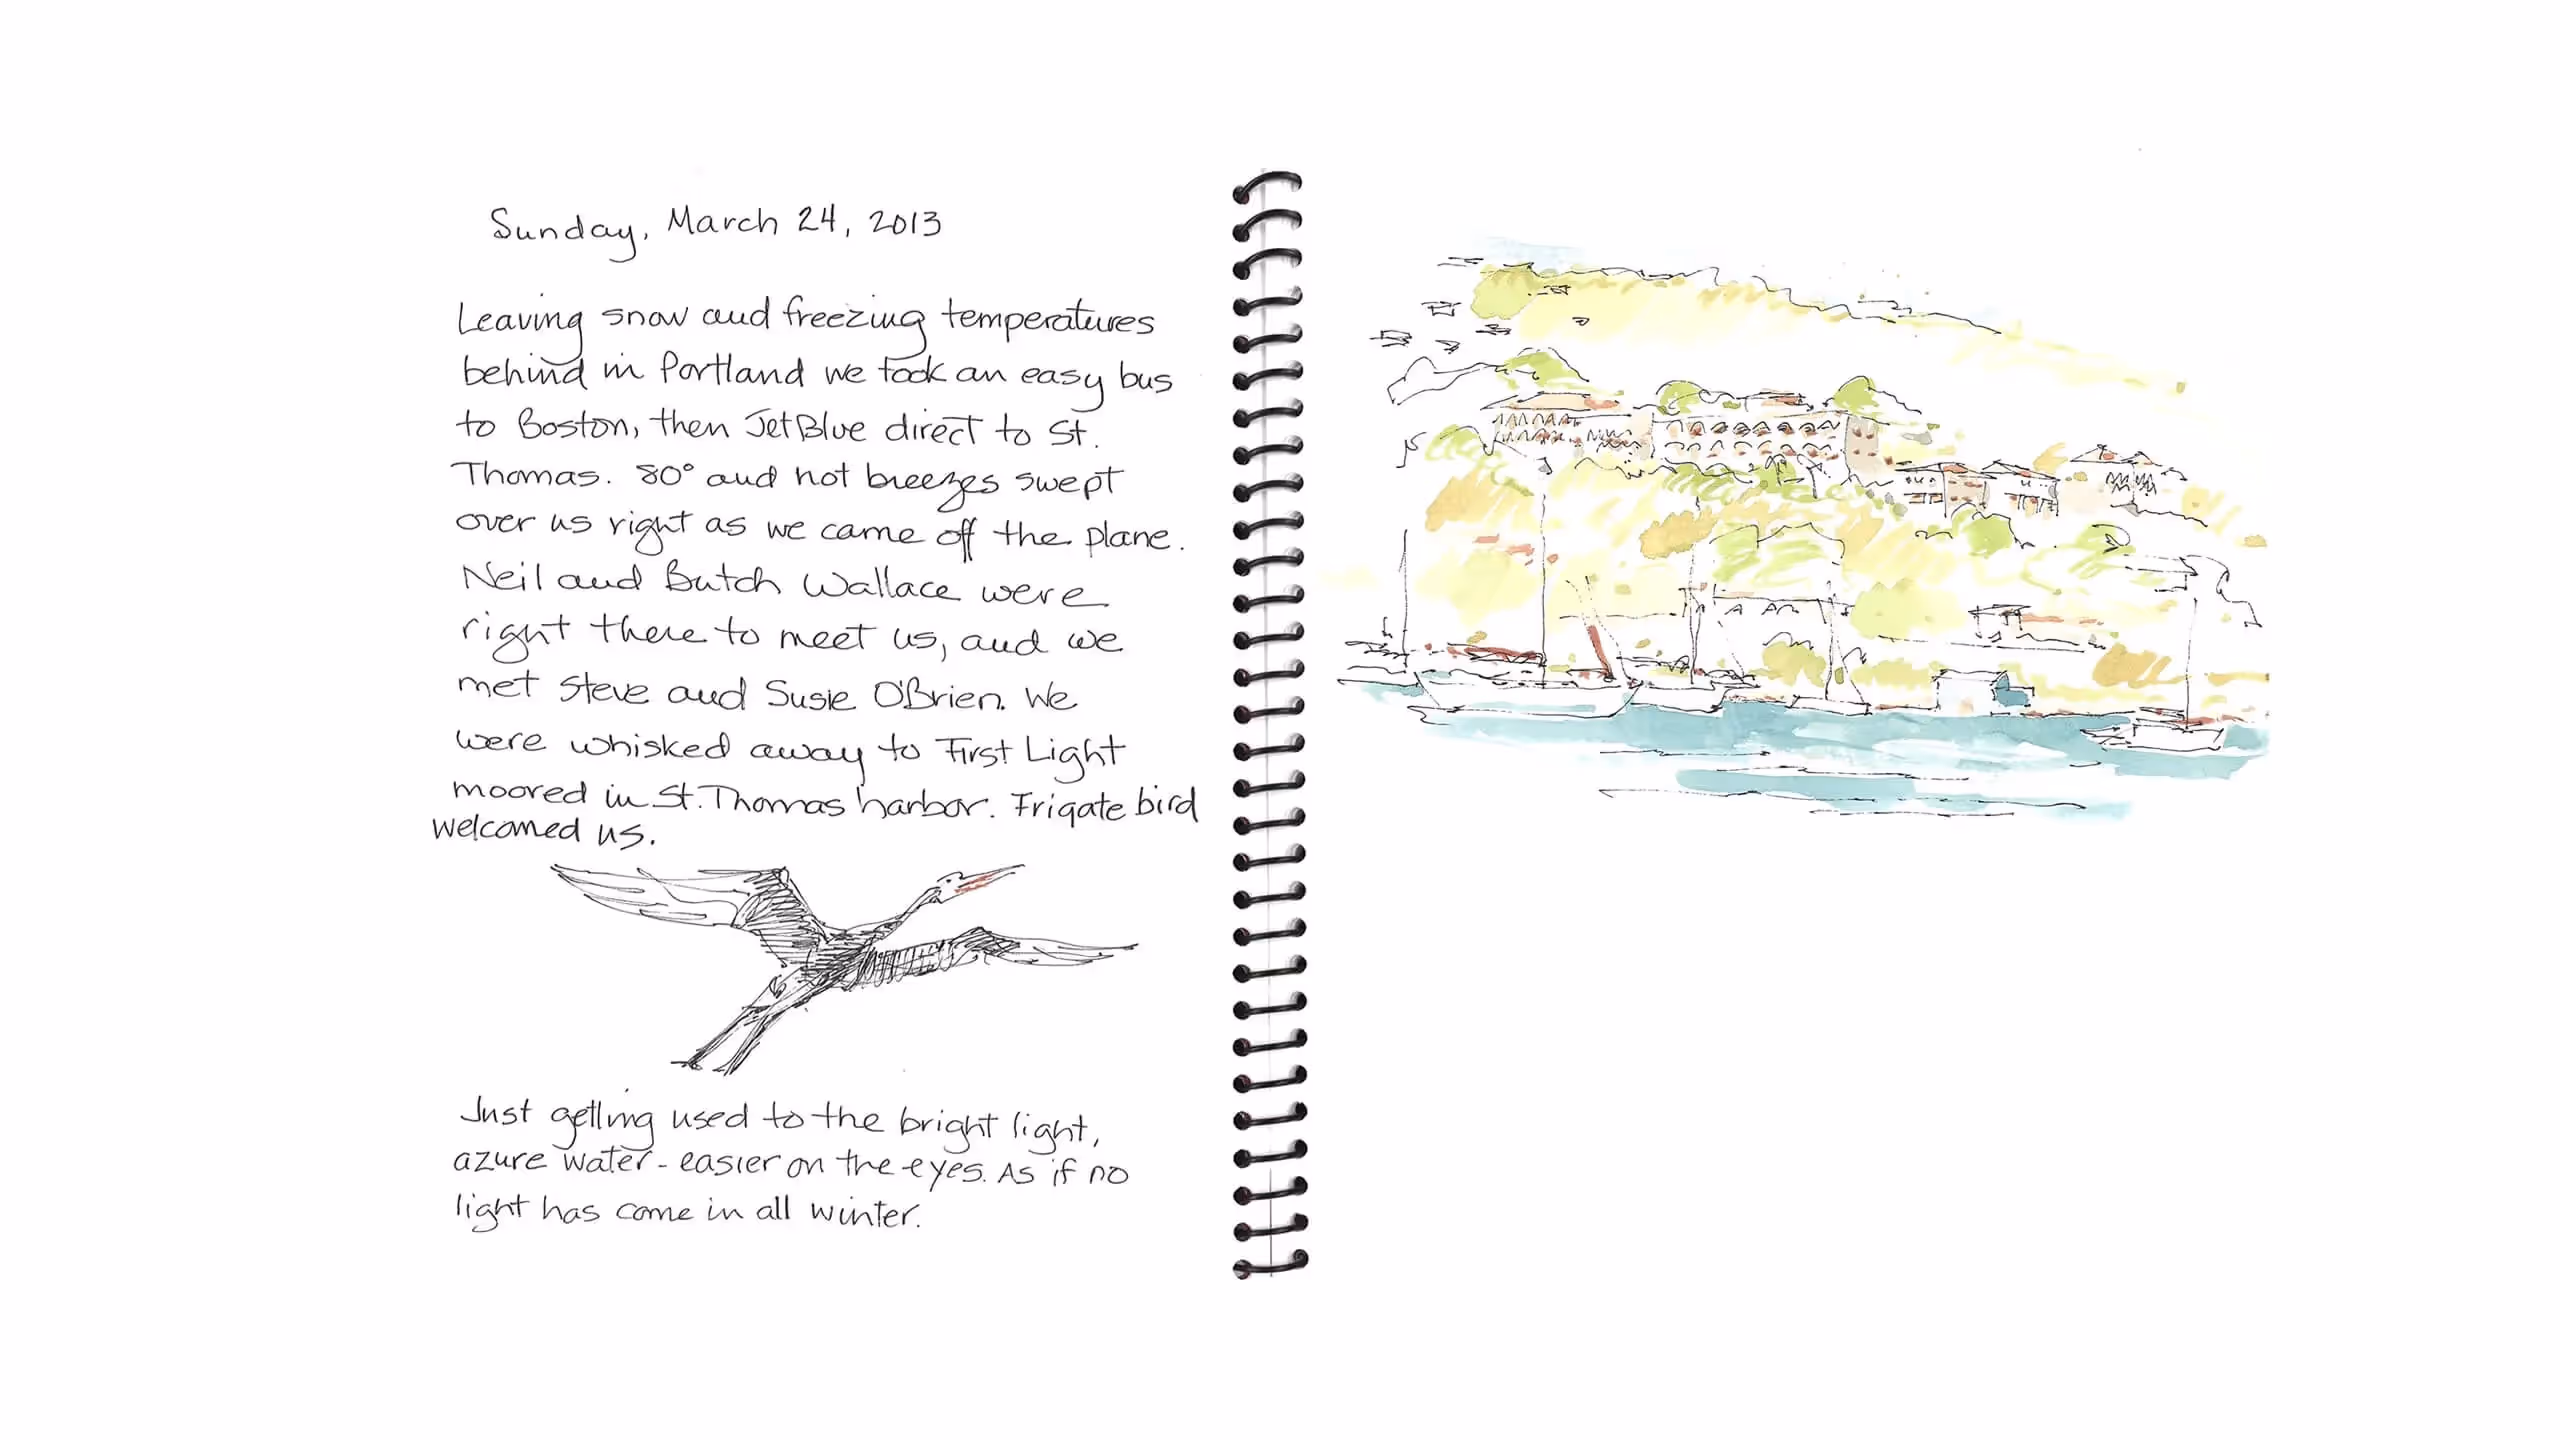 Sunday, March 24, 2013
Leaving snow and freezing temperatures
behind in Portland we took an easy bus
to Boston, then JetBlue direct to St.
Thomas. 80° and hot breezes swept
over us right as we came off the plane.
Neil and Butch Wallace were
right there to meet us, and we
met Steve and Susie O'Brien. We
were whisked away to First Light
moored in St. Thomas harbor. Frigate bird
welcomed us.
Just getting used to the bright light,
azure water - easier on the eyes. As if no
light has come in all winter.